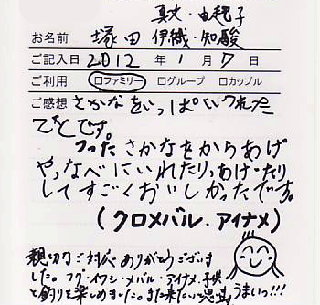 真丈・由香子
お名前 塚田 伊織・知駿
ご記入日 2012 年 1 月 7 日
ご利用 □ファミリー □グループ □カップル
ご感想 さかなをいっぱいつれた
ことです。
つったさかなをからあげ
や、なべにいれたり、あげたり
してすごくおいしかったです。
(クロメバル・アイナメ)
親切なご対応ありがとうございま
した。フグ・イワシ・メバル・アイナメ、子供
と釣りを楽しめました。また来たいです。
うまい!!!